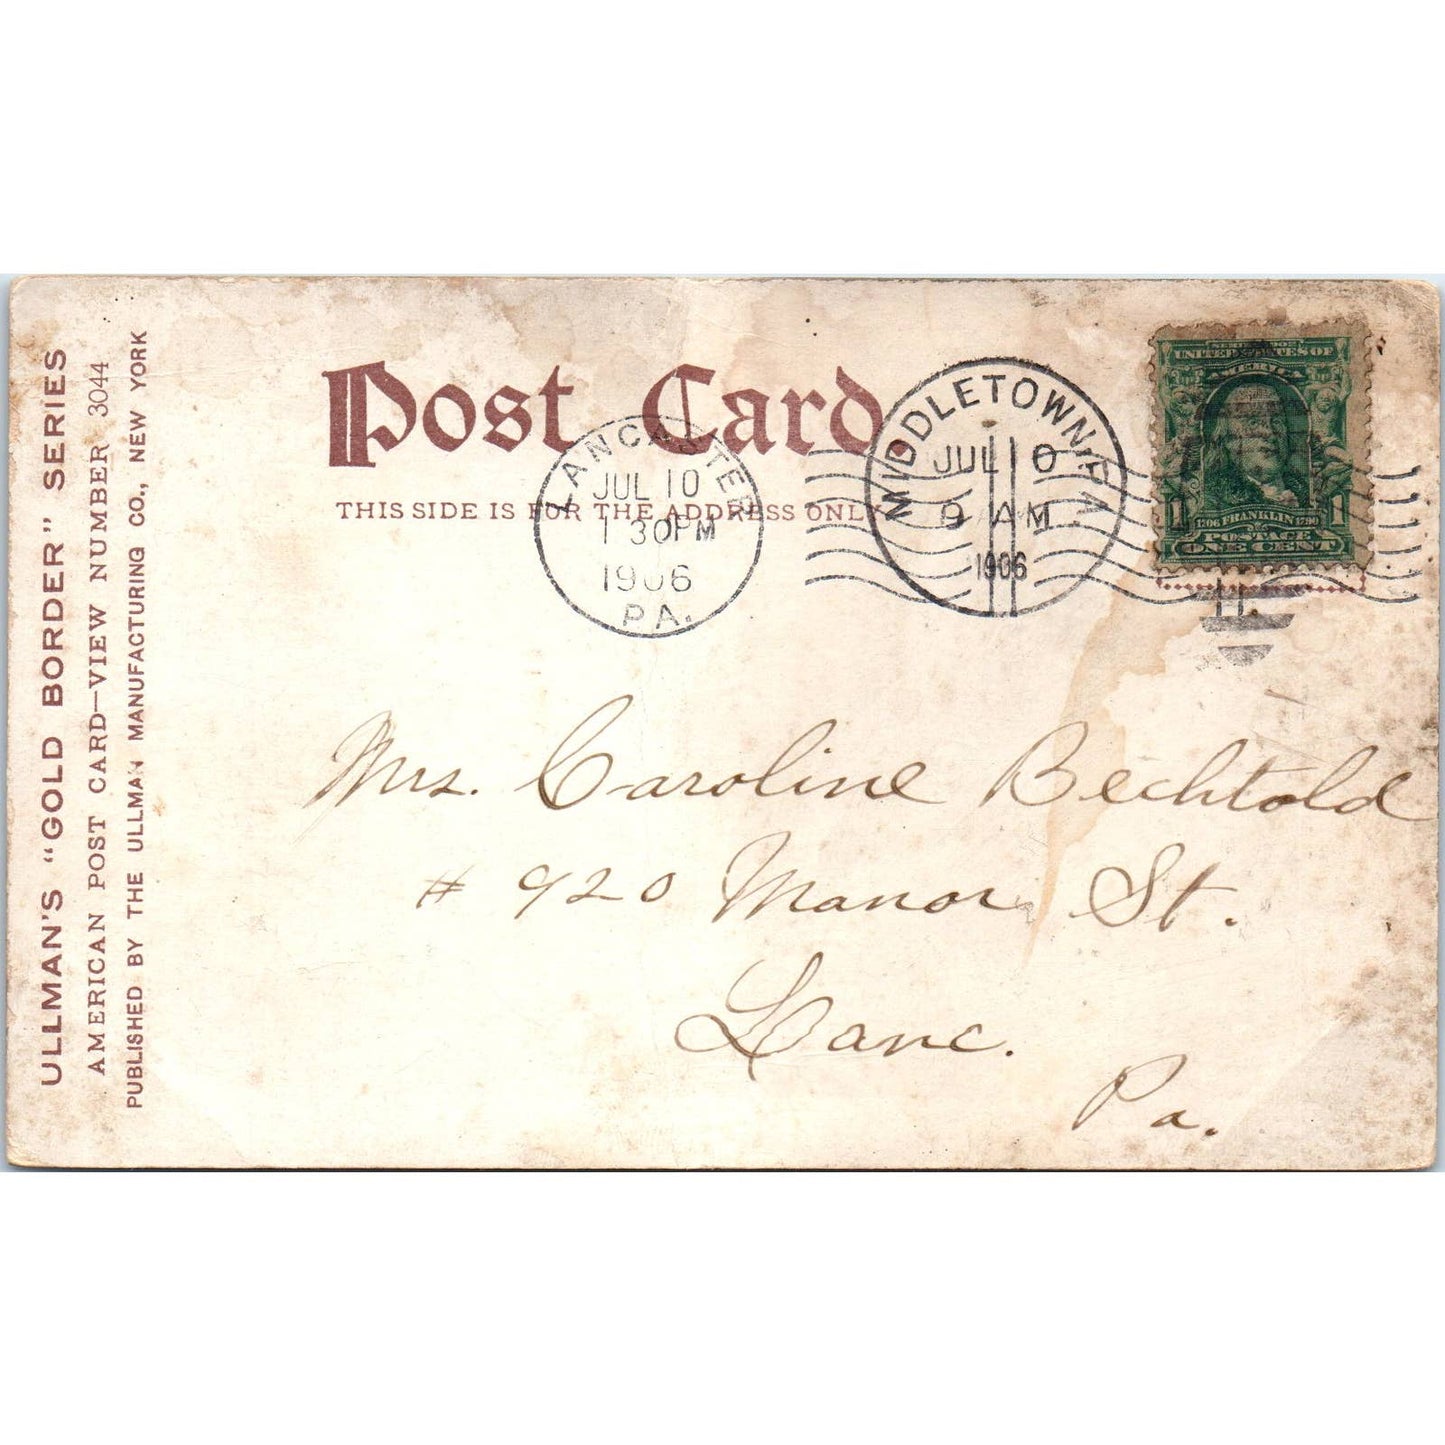 ULLMAN'S "GOLD BORDER" SERIES
AMERICAN POST CARD—VIEW NUMBER 3044
PUBLISHED BY THE ULLMAN MANUFACTURING CO., NEW YORK
Post Card.
THIS SIDE IS FOR THE ADDRESS ONLY
LANCASTER
JUL 10
1 30PM
1906
PA.
MIDDLETOWN, PA.
JUL 10
9 AM
1906
SERIES OF 1902
UNITED STATES OF
AMERICA
1 1
1706 FRANKLIN 1790
POSTAGE
ONE CENT
Mrs. Caroline Bechtold
# 920 Manor St.
Lanc.
Pa.